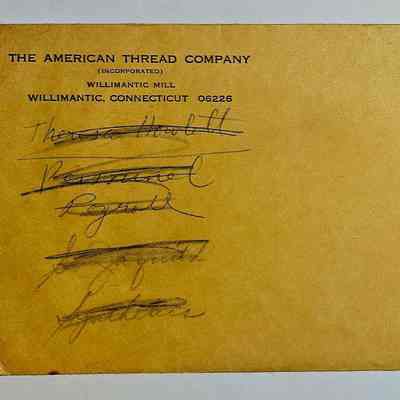 THE AMERICAN THREAD COMPANY
(INCORPORATED)
WILLIMANTIC MILL
WILLIMANTIC, CONNECTICUT 06226
Theresa
Personnel
Payroll
Synthetics